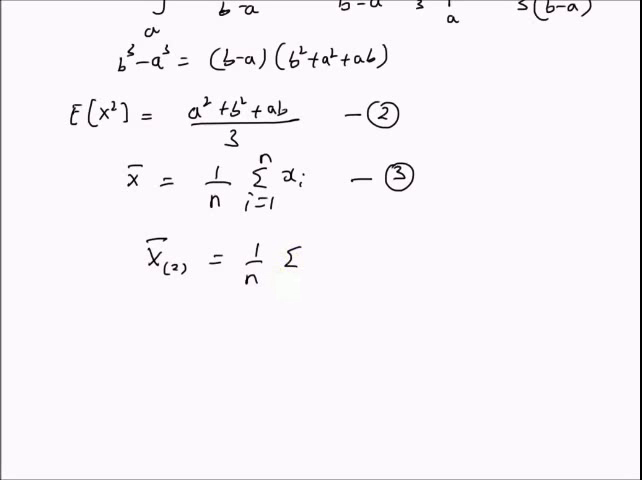 ∫ₐ b-a b-a 3 |ₐ 3(b-a)
b³-a³ = (b-a)(b²+a²+ab)
E[X²] = (a²+b²+ab)/3 — ②
x̄ = 1/n Σᵢ₌₁ⁿ xᵢ — ③
X̄₍₂₎ = 1/n Σ